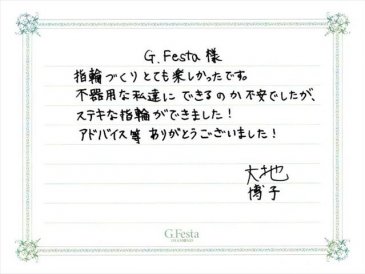 G.Festa 様
指輪づくりとても楽しかったです。
不器用な私達にできるのか不安でしたが、
ステキな指輪ができました！
アドバイス等 ありがとうございました！
大地
博子
G.Festa